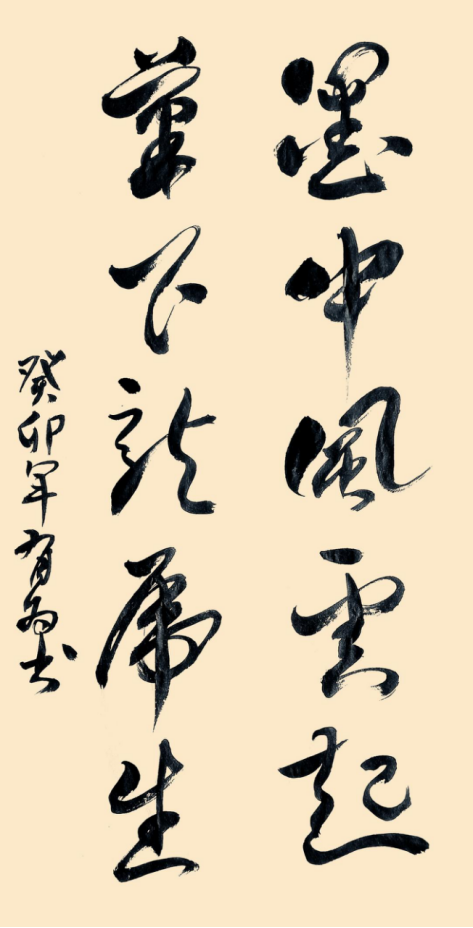 墨中風雲起
筆下龍虎生
癸卯年有為書